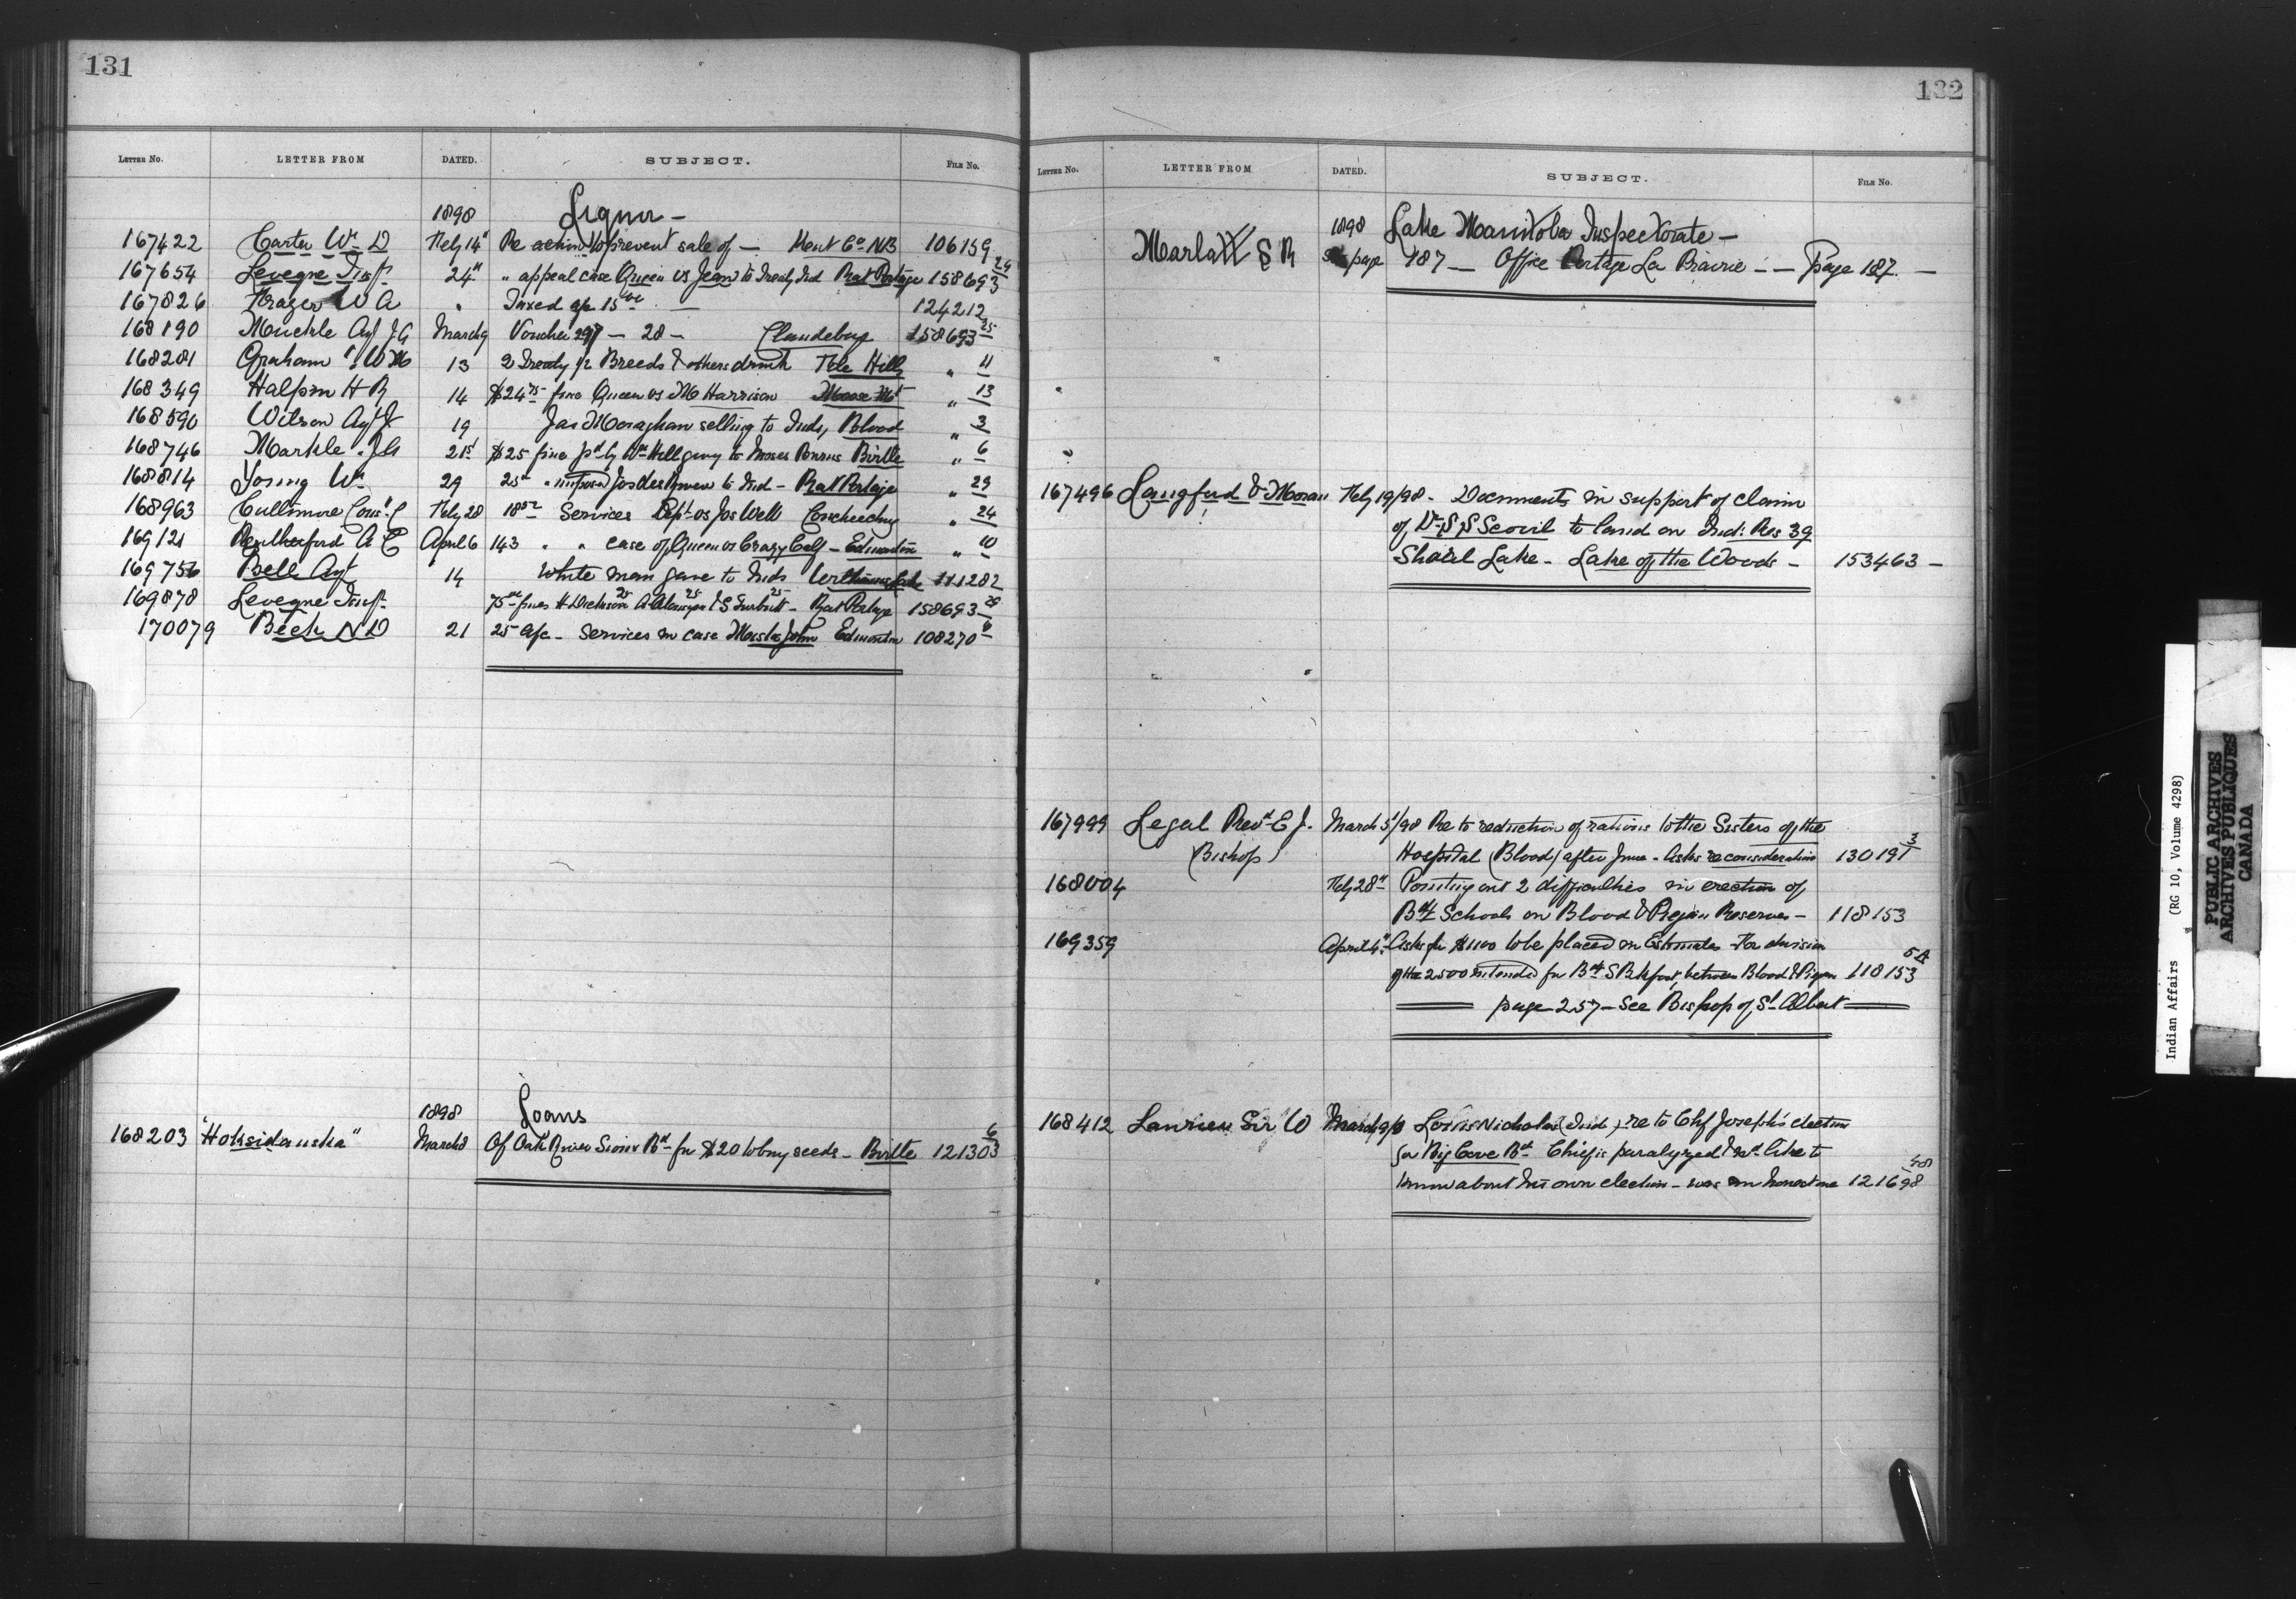 131
LETTER No. LETTER FROM DATED. SUBJECT. FILE No.
1898 Liquor -
167422 Carter Wm D Feby 14" Re action to prevent sale of — Kent Co NB 106159
167654 Levegne Insp. 24" " appeal case Queen vs Jean to Treaty Ind Rat Portage 158693 29
167826 W A " Taxed a/c 15 — 124212
168190 Muckle Agt JG March 9 Voucher — 28 — Clandeboye 158693 25
168201 Graham WM 13 2 Treaty ½ Breeds & others drunk File Hills " 11
168349 Halpin H R 14 $24 75 fine Queen vs M Harrison Moose Mt " 13
168590 Wilson Agt J 19 Jas Monaghan selling to Inds, Blood " 3
168746 Markle JA 21st $25 fine pd by Wm Hell to Moses Burns Birtle " 6
168814 Young Wm 29 25 " imposed Jos to Ind - Rat Portage " 29
168963 Cullimore Const. C Feby 28 18 50 Services Dept vs Jos Well " 24
169121 Rutherford A C April 6 143 " " case of Queen vs Crazy Calf - Edmonton " 10
169756 Bell Agt 14 White man gave to Inds Williams Lake 111282
169878 Levegne Insp. 75 fines H Dickson 25 A 25 & S 25 - Rat Portage 158693 29
170079 Beck N D 21 25 a/c - Services in case John Edmonton 108270
1898 Loans
168203 "Hoksidauska" March 8 Of Oak River Sioux Bd for $20 to buy seeds - Birtle 121303 6
132
LETTER No. LETTER FROM DATED. SUBJECT. FILE No.
1898 Lake Manitoba Inspectorate —
Marlatt S R See page 187 — Office Portage La Prairie — — Page 187. —
167496 Langford & Moran Feby 19/98 - Documents in support of claim
of Dr S S Scovil to land on Ind: Res 39
Shoal Lake - Lake of the Woods - 153463 —
167999 Legal Revd E J. March 5/98 Re to reduction of rations to the Sisters of the
(Bishop) Hospital (Blood) after June - Asks reconsideration 130191 3
168004 Feby 28" Pointing out 2 difficulties in erection of
Bdg Schools on Blood & Piegan Reserves - 118153
169359 April 4" Asks for $1100 to be placed in Estimates for division
of the 2500 intended for Bdg S between Blood & Piegan 118153 5A
page 257 - See Bishop of St Albert
168412 Laurier Sir W March Louis Nicholas (Ind) re to Chf Joseph's election
for Big Cove Bd Chief is paralyzed & wd like to
know about his own election - was an honest one 121698
Indian Affairs (RG 10, Volume 4298)
PUBLIC ARCHIVES
ARCHIVES PUBLIQUES
CANADA